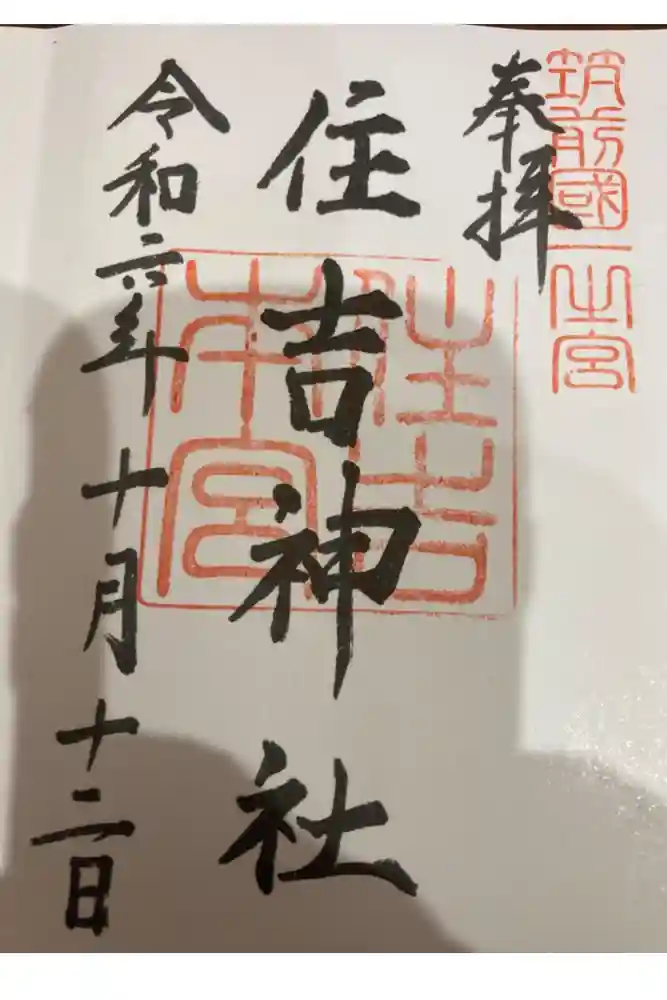 筑前國一之宮
奉拝
住吉神社
住吉本宮
令和六年十月十二日